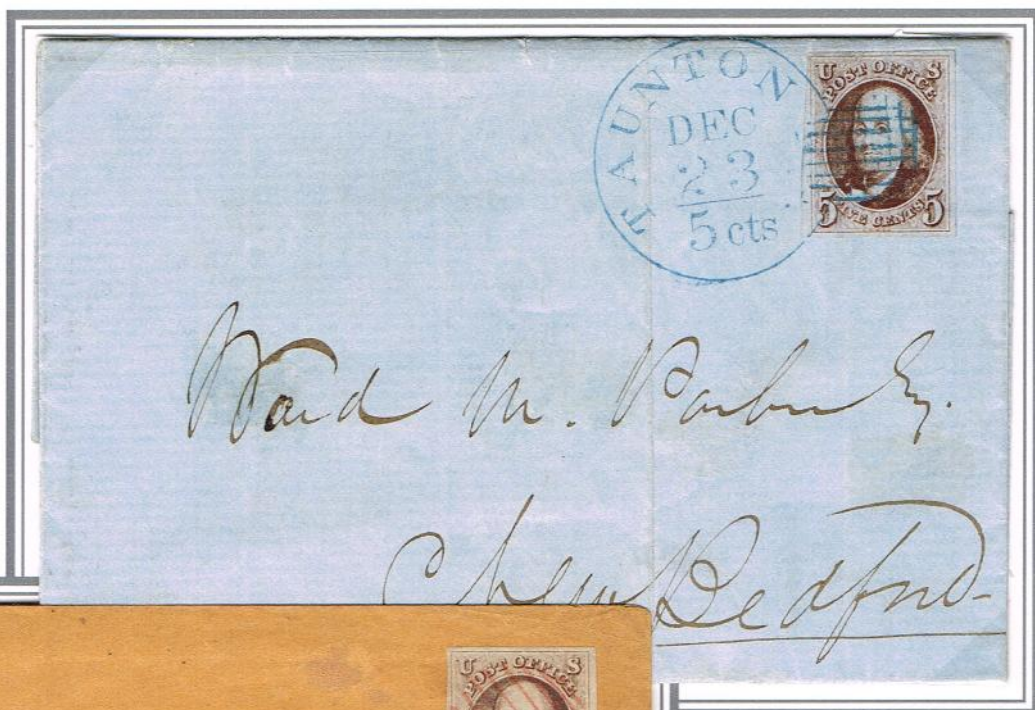 TAUNTON
DEC
23
5 cts
U S
POST OFFICE
5 FIVE CENTS 5
Ward M. Parker Esq.
New Bedford
U S
POST OFFICE